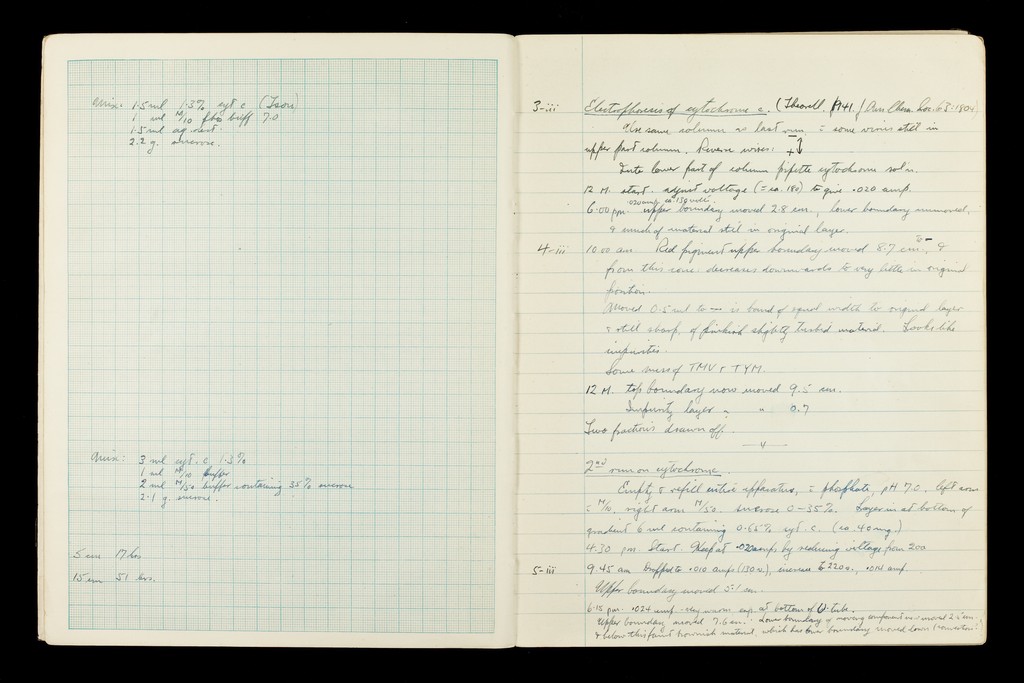 Mix. 1.5 ml 1.3% cyt c (Tson)
1 ml M/10 pho buff 7.0
1.5 ml aq. dest.
2.2 g. sucrose.
Mix: 3 ml cyt. c 1.3%
1 ml M/10 buffer
2 ml M/50 buffer containing 35% sucrose
2.1 g. sucrose.
5 cm 17 hrs
15 cm 51 hrs.
3-iii Electrophoresis of cytochrome c. (Theorell 1941 J Am Chem. Soc. 63:1804)
Use same column as last run, = some virus still in
upper part column. Reverse wires: - + ↕
Into lower part of column pipette cytochrome soln.
12 M. start. adjust voltage (= ca. 180) to give .020 amp.
.020 amp ca. 130 volt.
6:00 pm. upper boundary moved 2.8 cm., lower boundary unmoved,
& much of material still in original layer.
4-iii 10.00 am Red pigment upper boundary moved 8.7 cm to -, &
from this conc. decreases downwards to very little in original
position.
Moved 0.5 ml to is band of equal width to original layer
& still sharp, of pinkish slightly turbid material. Looks like
impurities.
Some mess of TMV & TYM.
12 M. top boundary now moved 9.5 cm.
Impurity layer " " 0.7
Two fractions drawn off.
2nd run on cytochrome.
Empty & refill entire apparatus, = phosphate, pH 7.0, left arm
= M/10, right arm M/50. Sucrose 0-35%. Layer in at bottom of
gradient 6 ml containing 0.65% cyt. c. (ca. 40 mg.)
4.30 pm. Start. Keep at .020 amps by reducing voltage from 200
5-iii 9.45 am Dropped to .010 amps (130 v.), increase to 220 v., .014 amp.
Upper boundary moved 5.1 cm.
6.15 pm. .024 amp. very warm esp. at bottom of U-tube.
Upper boundary moved 7.6 cm. Lower boundary of moving component now moved 2.5 cm.
& below this faint brownish material, which has lower boundary moved down